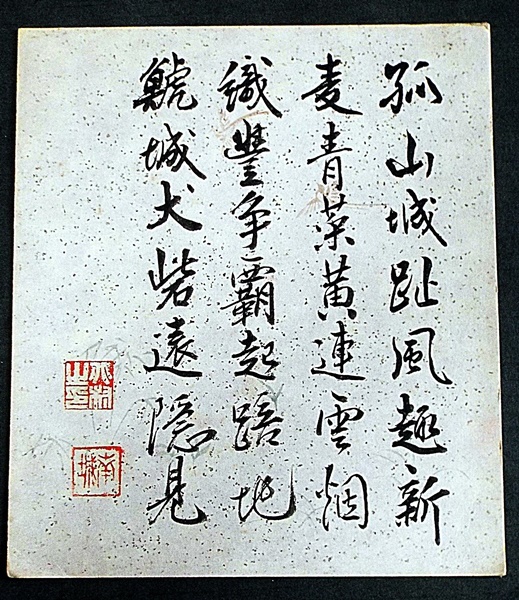 孤山城趾風趣新
麦青菜黄連雲烟
織豐争覇起踣地
鯱城犬砦遠隠見
南城